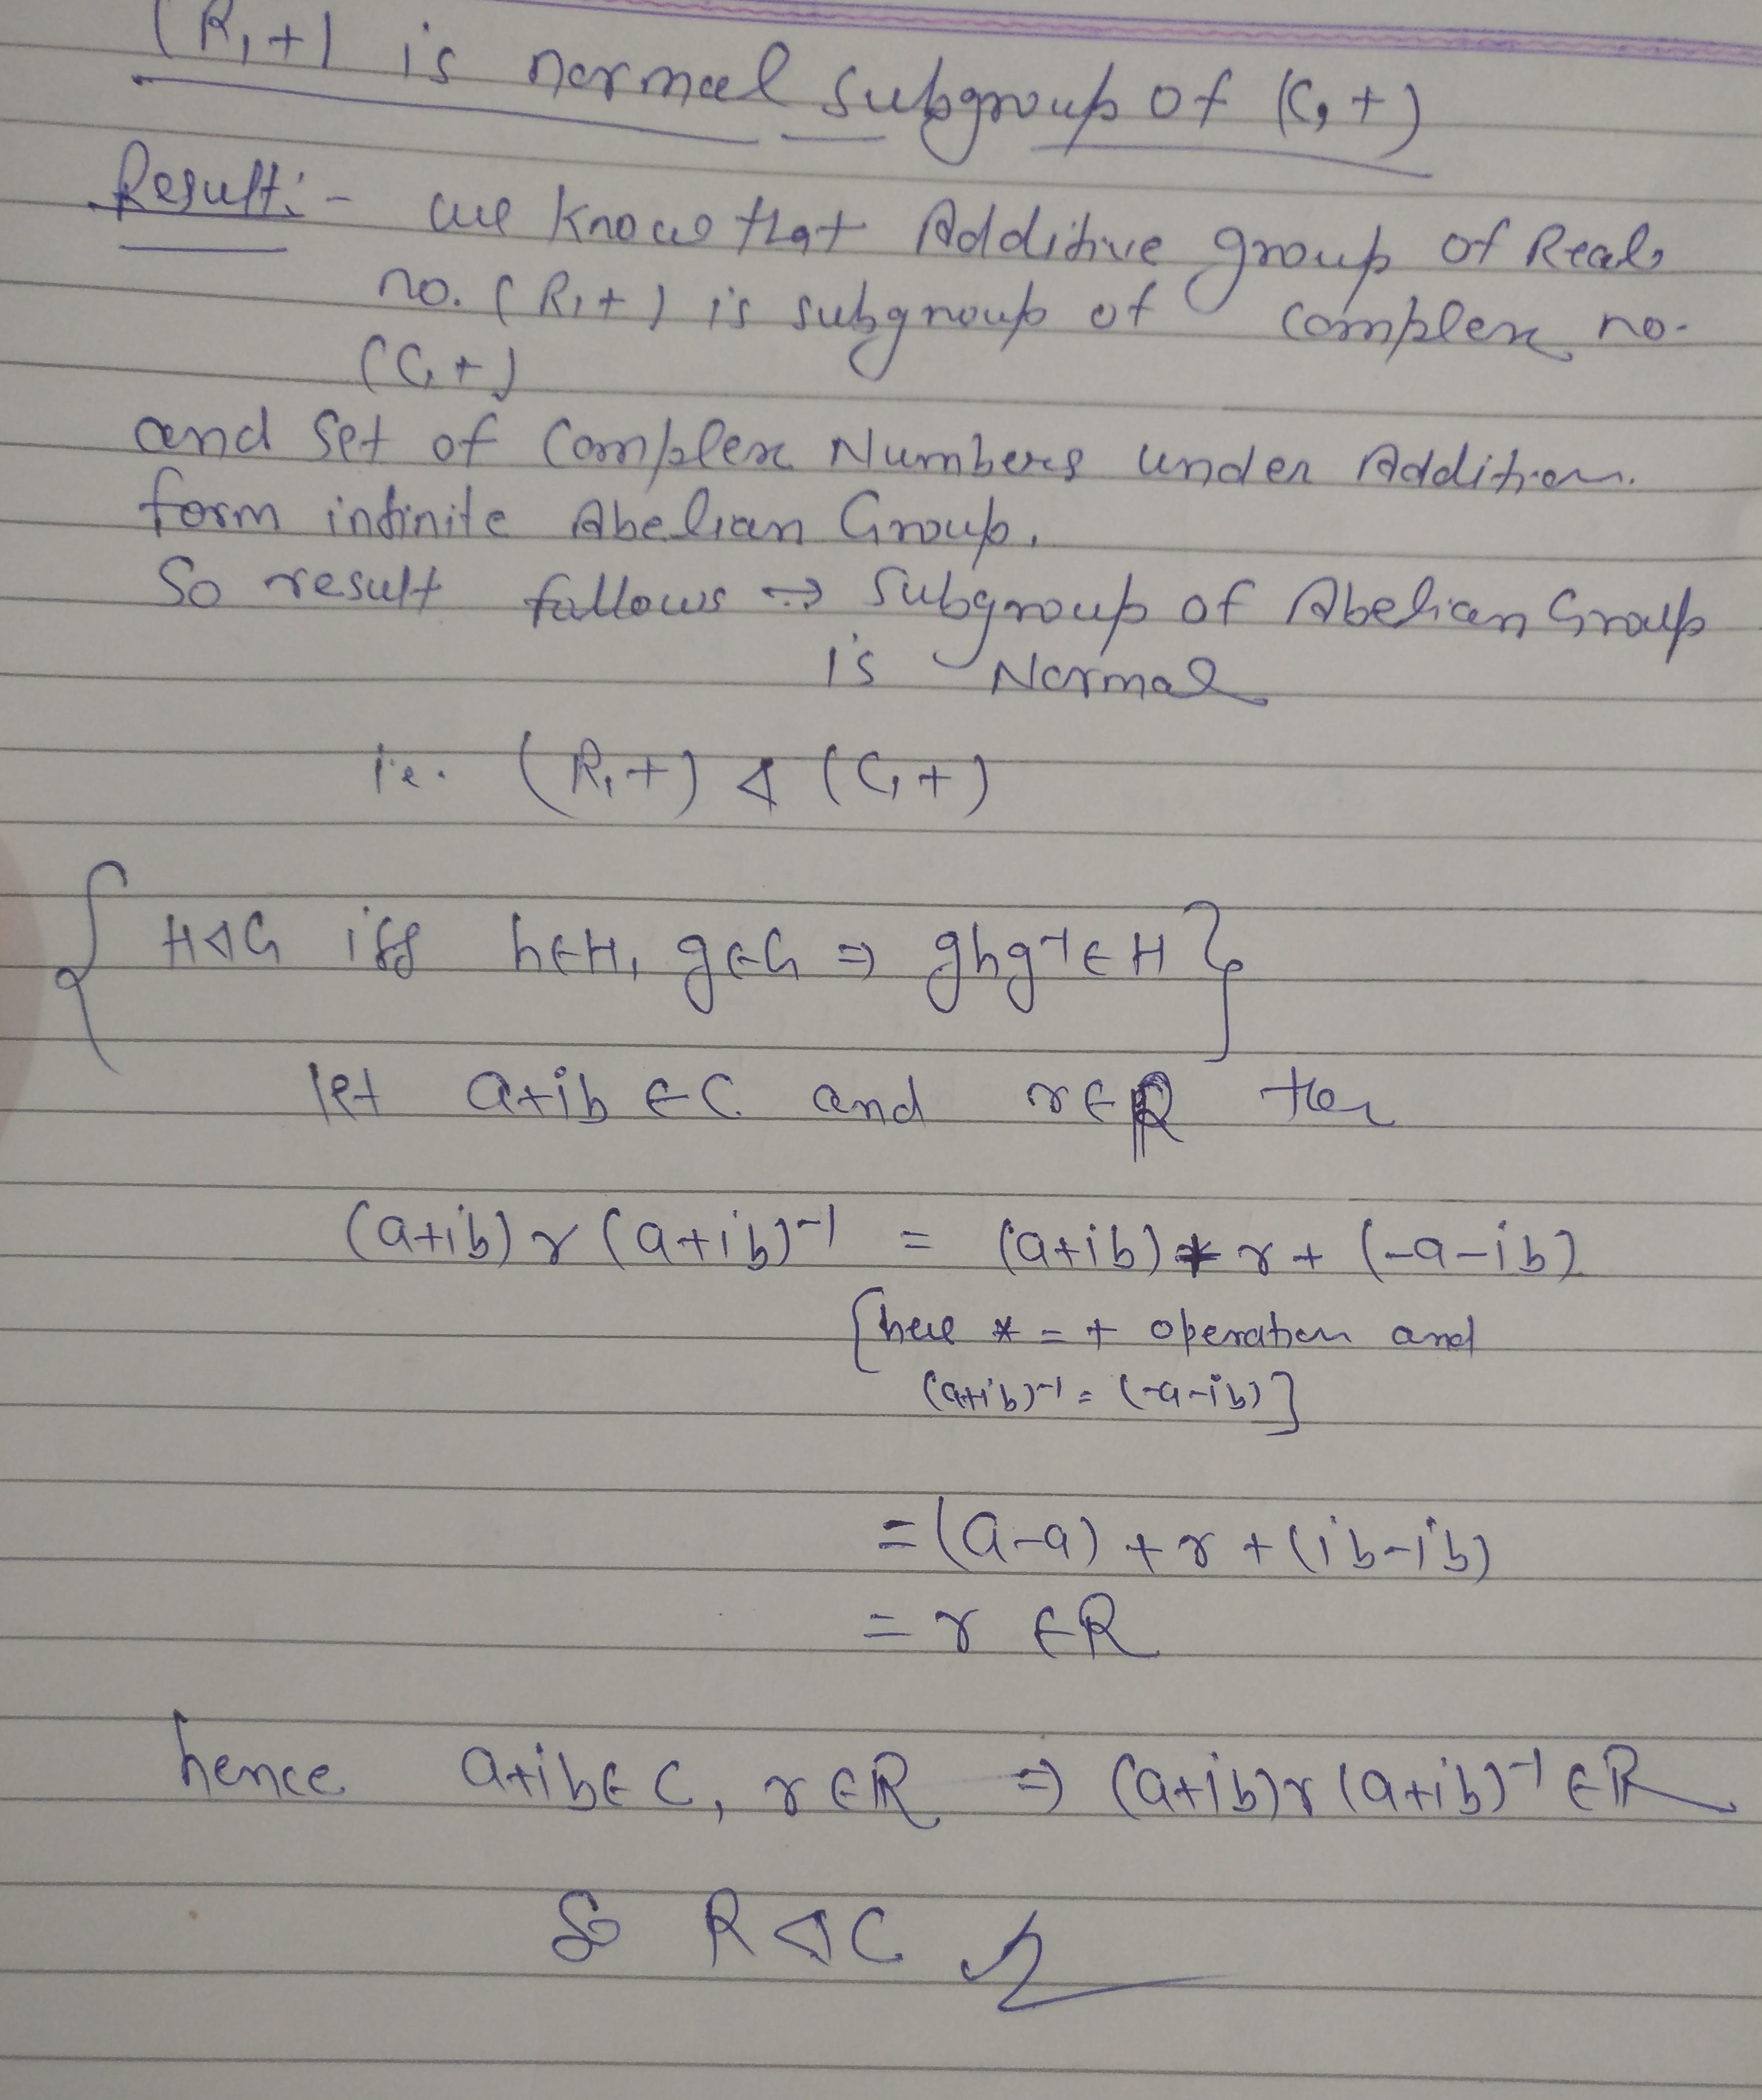 (R,+) is normal subgroup of (C,+)
Result:- we know that Additive group of Real
no. (R,+) is subgroup of complex no.
(C,+)
and set of Complex Numbers under Addition.
form infinite Abelian Group.
So result follows → subgroup of Abelian Group
is Normal
i.e. (R,+) ⊲ (C,+)
{ H⊲G iff h∈H, g∈G ⇒ ghg⁻¹∈H }
let a+ib ∈ C and r∈R then
(a+ib) r (a+ib)⁻¹ = (a+ib) + r + (-a-ib)
[here * = + operation and
(a+ib)⁻¹ = (-a-ib)]
= (a-a) + r + (ib-ib)
= r ∈R
hence a+ib∈C, r∈R ⇒ (a+ib)r(a+ib)⁻¹ ∈R
So R⊲C